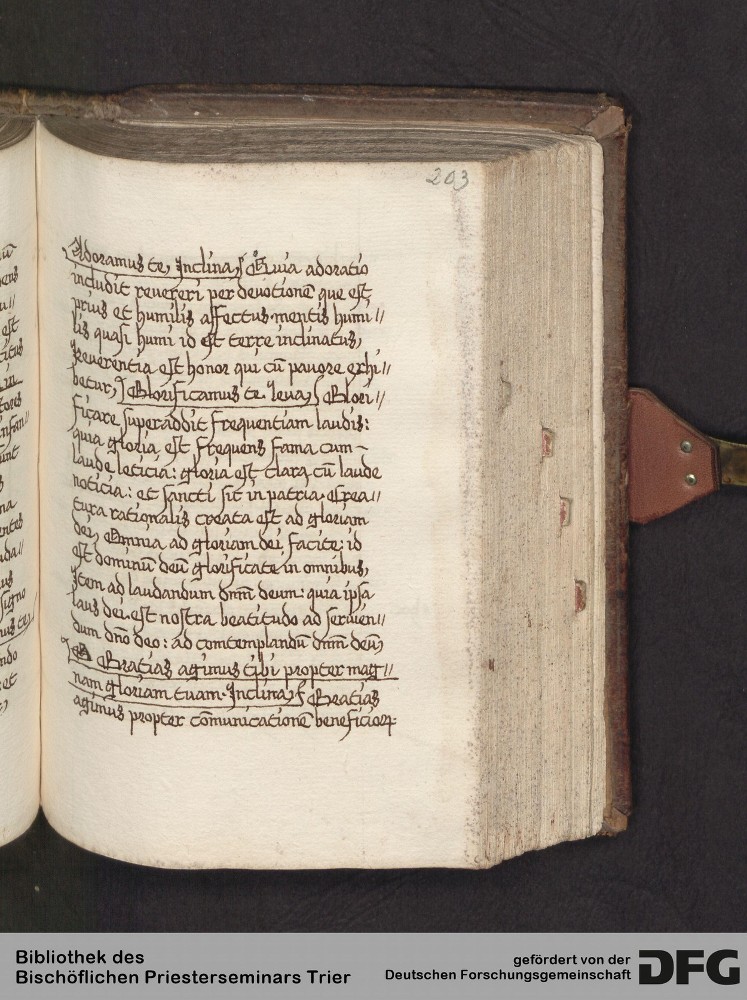 203
Adoramus te, Inclina, Quia adoratio
includit revereri per devotionẽ que est
prius et humilis affectus mentis humi//
lis quasi humi id est terre inclinatus,
Reverentia est honor qui cũ pavore exhi//
betur, Glorificamus te leva, Glori//
ficare superaddit frequentiam laudis:
quia gloria est frequens fama cum
laude leticia: gloria est clara cũ laude
noticia: et sancti sit in patria. Crea//
tura rationalis creata est ad gloriam
dei, Omnia ad gloriam dei facite: id
est dominũ deũ glorificate in omnibus,
Item ad laudandum dnm̃ deum: quia ipsa
laus dei est nostra beatitudo ad servien//
dum dño deo: ad comtemplandũ dnm̃ deũ,
Gratias agimus tibi propter mag//
nam gloriam tuam. Inclina, Gratias
agimus propter cõmunicationẽ beneficiorꝝ:
Bibliothek des
Bischöflichen Priesterseminars Trier
gefördert von der
Deutschen Forschungsgemeinschaft
DFG